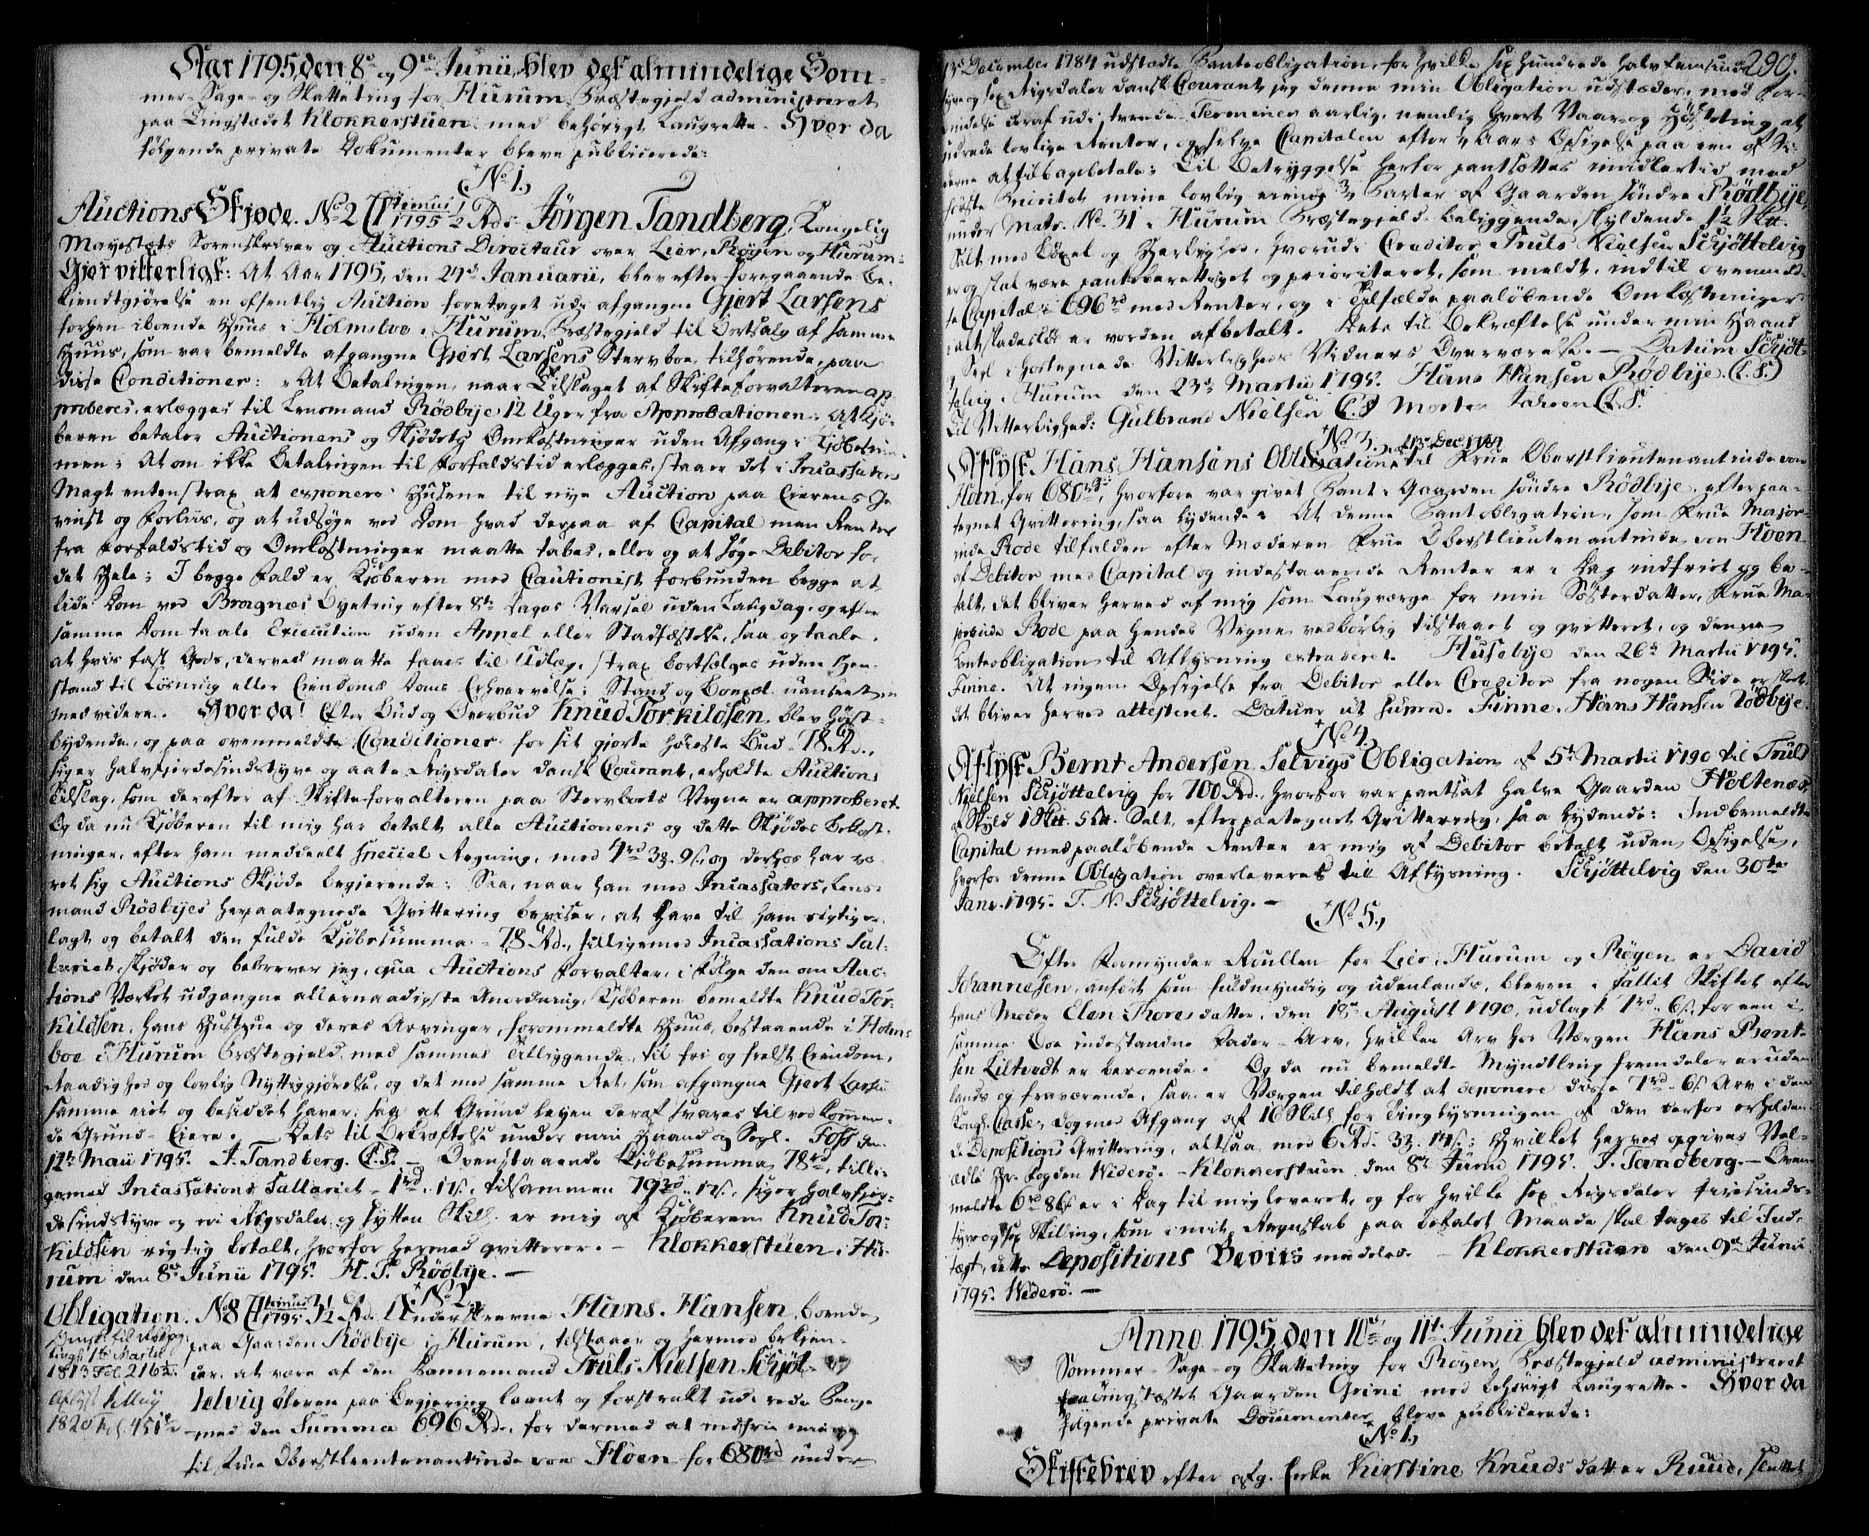 Aar 1795, den 8de og 9de Junii, blev det almindelige Som-
mer-Sage- og Skatteting for Hurum Præstegjeld administreret
paa Tingstædet Klokkerstuen med behørigt Laugrette. Hvor da
følgende private Dokumenter bleve publicerede:
(No 1.)
Auctions Skjøde. No 2 1795 1/2 Rd. Jørgen Tandberg, Kongelig
Mayestæts Sorenskriver og Auctions Directeur over Lier, Røyen og Hurum:
Gjør vitterligt: At Aar 1795, den 27de Januarii, blev efter foregaaende Be-
kiendtgjørelse en offentlig Auction foretaget udi afgangne Gjert Larsens
forhen iboende Huus i Holmsboe i Hurum Præstegjeld til Bortsalg af samme
Huus, som var bemeldte afgangne Gjert Larsens Sterbboe tilhørende, paa
disse Conditioner: At Betalingen, naar Tilslaget af Skifteforvalteren ap-
proberes, erlægges til Lensmand Rødbye 12 Uger fra Approbationen: at Kjø-
beren betaler Auctionens og Skjødets Omkostninger uden Afgang i Kjøbesum-
men: At om ikke Betalingen til Forfaldstid erlægges, staaer det i Incassators
Magt enten strax at exponere Husene til nye Auction paa Eierens Ge-
vinst og Forliis, og at udsøge ved Dom hvad derpaa af Capital men Renter
fra Forfaldstid og Omkostninger maatte tabes, eller og at søge Debitor for
det Hele; I begge Fald er Kjøberen med Cautionist forbunden begge at
lide Dom ved Bragnæs Byeting efter 8te Dages Varsel uden Laugdag, og efter
samme Dom taale Execution uden Appel eller Stadfæstelse, saa og taale,
at hvis fast Gods, derved maatte faaes til Udlæg, strax bortsælges uden Hen-
stand til Løsning eller Eiendoms Doms Erhvervelse; Stand og Bopæl uanseet
med videre. Hvor da! Efter Bud og Overbud Knud Torkildsen blev høist-
bydende, og paa ovenmeldte Conditioner for sit gjorte høieste Bud 78 Rd.,
siger halvfjerdesindstyve og aate Rigsdaler dansk Courant, erholdte Auctions
Tilslag, som derefter af Skifteforvalteren paa Sterbboets Vegne er approberet.
Og da nu Kjøberen til mig har betalt alle Auctionens og dette Skjødes Bekost-
ninger, efter ham meddeelt speciel Regning, med 4rd 3z. 9s. og derhos har væ-
ret sig Auctions Skjøde begjerende: Saa, naar han med Incassators, Lens-
mand Rødbyes herpaategnede Qvittering beviser, at have til ham rigtig er-
lagt og betalt den fulde Kjøbesumma 78 Rd., tilligemed Incassations Sal-
lariet, skjøder og bekræver jeg, qva Auctions Forvalter, i Følge den om Auc-
tions Værket udgangne allernaadigste Anordning, Kjøberen bemeldte Knud Tor-
kildsen, hans Hustrue og deres Arvinger, forommeldte Huus, bestaaende i Holms
boe i Hurum Præstegjeld med sammes Tilliggende, til fri og frelst Eiendom,
Raadighed og lovlig Nyttiggjørelse, og det med samme Ret, som afgangne Gjert Larsen
samme eiet og besiddet haver; saa at Grund Leyen deraf svares til vedkommen-
de Grund-Eiere. Dets til Bekræftelse under min Haand og Segl. Foss den
12te Maii 1795. J. Tandberg. (L.S.) Ovenstaaende Kjøbesumma 78rd, tilli-
gemed Incassations Sallariet 1rd. 17s., tilsammen 79rd. 17s., siger halvfjer-
desindstyve og ni Rigsdaler og sytten Skill. er mig af Kjøberen Knud Tor-
kildsen rigtig betalt, hvorfor hermed qvitteres. — Klokkerstuen i Hu-
rum den 8de Junii 1795. H. P. Rødbye. —
(No 2.)
Obligation. No 8 1795 3 1/2 Rd. Underskrevne Hans Hansen, boende
paa Gaarden Rødbye i Hurum, tilstaaer og hermed bekjen-
1813 Fol. 216
der, at være af den Dannemand Truls Nielsen Schjøt-
Aflyst
telvig bleven paa Begjering laant og forstrakt udi rede Penge
1820 fol. 451
med den Summa 696 Rd., for dermed at indfrie min
til Frue Oberstleutenantinde von Hoen for 680rd under
290.
13de December 1784 udstædte Panteobligation, for hvilke sex Hundrede halvfemsinds-
tyve og sex Rigsdaler dansk Courant jeg denne min Obligation udstæder, med For-
bindelse deraf udi tvende Terminer aarlig, nemlig hvert Vaar- og Høsteting at
udrede lovlige Renter, og selve Capitalen efter 1/2 Aars Opsigelse paa een af Si-
derne at tilbagebetale: Til Betryggelse herfor pantsættes imidlertid med
første Prioritet mine lovlig eiende 3/4 Parter af Gaarden søndre Rødbye,
under Matr. No. 31 i Hurum Præstegjeld beliggende, skyldende 1 1/2 Skp.
Salt med Bøxel og Herlighed, hvorudi Creditor Truls Nielsen Schjøttelvig
er og skal være panteberettiget og prioriteret, som meldt, indtil ovenmeld-
te Capital 696rd med Renter, og i Tilfælde paaløbende Omkostninger
skadesløs er vorden afbetalt. Dets til Bekræftelse under min Haand
og Segl i hostegnede Vitterligheds Vidners Overværelse. — Datum Schjøt-
telvig i Hurum den 23de Martii 1795. Hans Hansen Rødbye. (L.S.)
Til Vitterlighed: Gulbrand Nielsen (L.S.) Morten Jahren (L.S.)
(No 3.) af 13de Dec. 1784
Aflyst Hans Hansens Obligation til Frue Oberstlieutenantinde von
Hoen, for 680rd, hvorfore var givet Pant i Gaarden søndre Rødbye, efter paa-
tegnet Qvittering, saa lydende: At denne Pantobligation, som Frue Major-
inde Rode tilfalden efter Moderen Frue Oberstlieutenantinde von Hoen
af Debitor med Capital og indestaaende Renter er i Dag indfriet og be-
talt, det bliver herved af mig som Laugværge for min Søsterdatter, Frue Ma-
jorinde Rode paa hendes Vegne vedbørlig tilstaaet og qvitteret, og denne
Panteobligation til Aflysning extraderet. Husebye den 26de Martii 1795.
Finne. At ingen Opsigelse fra Debitor eller Creditor fra nogen Side er skeet
det bliver herved attesteret. Datum ut supra. Finne. Hans Hansen Rødbye.
(No 4.)
Aflyst Bernt Andersen Selvigs Obligation af 5te Martii 1790 til Truls
Nielsen Schjøttelvig for 700 Rd., hvorfor var pantsat halve Gaarden Holtenæs,
af Skyld 1 Skp. 5 Lpd. Salt, efter paategnet Qvittering, saa lydende: Indbemeldte
Capital med paaløbende Renter er mig af Debitor betalt uden Opsigelse,
hvorfor denne Obligation overleveres til Aflysning. Schjøttelvig den 30te
Janv. 1795. T. N. Schjøttelvig. —
(No 5.)
Efter Formynder Rullen for Lier, Hurum og Røyen er David
Johannessen, anført som fuldmyndig og udenlands, bleven i fallit Skiftet efter
hans Moder Elen Thoresdatter, den 18de August 1790, udlagt 7rd. 6s. for een i
samme Boe indestaaende Fader-Arv, hvilken Arv hos Værgen Hans Bent-
sen Liltvedt er beroende. Og da nu bemeldte Myndtling fremdeles er uden-
lands og fraværende, saa er Værgen tilholdt at deponere disse 7rd. 6s. Arv i den
Kongl. Casse, dog med Afgang af 16 Skill. for Tinglysningen af den derfor erholden-
de Depositions Qvittering, altsaa med 6 Rd. 3z. 14s.; Hvilket herved opgives Vel-
ædle Hr. Fogden Widerø. — Klokkerstuen den 8de Junii 1795. J. Tandberg. — Oven
meldte 6rd 86s er i Dag til mig leveret, og for hvilke sex Rigsdaler firesinds-
tyve og sex Skilling, som i mit Regnskab paa befalet Maade skal tages til Ind-
tægt, dette Depositions Beviis meddeles. — Klokkerstuen den 9de Junii
1795. Wiederø. —
Anno 1795, den 10de og 11te Junii blev det almindelige
Sommer-Sage- og Skatteting for Røyen Præstegjeld administreret
paa Tingstædet Gaarden Grini med behørigt Laugrette. Hvor da
følgende private Documenter bleve publicerede:
(No 1.)
Skiftebrev efter afg. Enke Kirstine Knudsdatter Ruud, sluttet